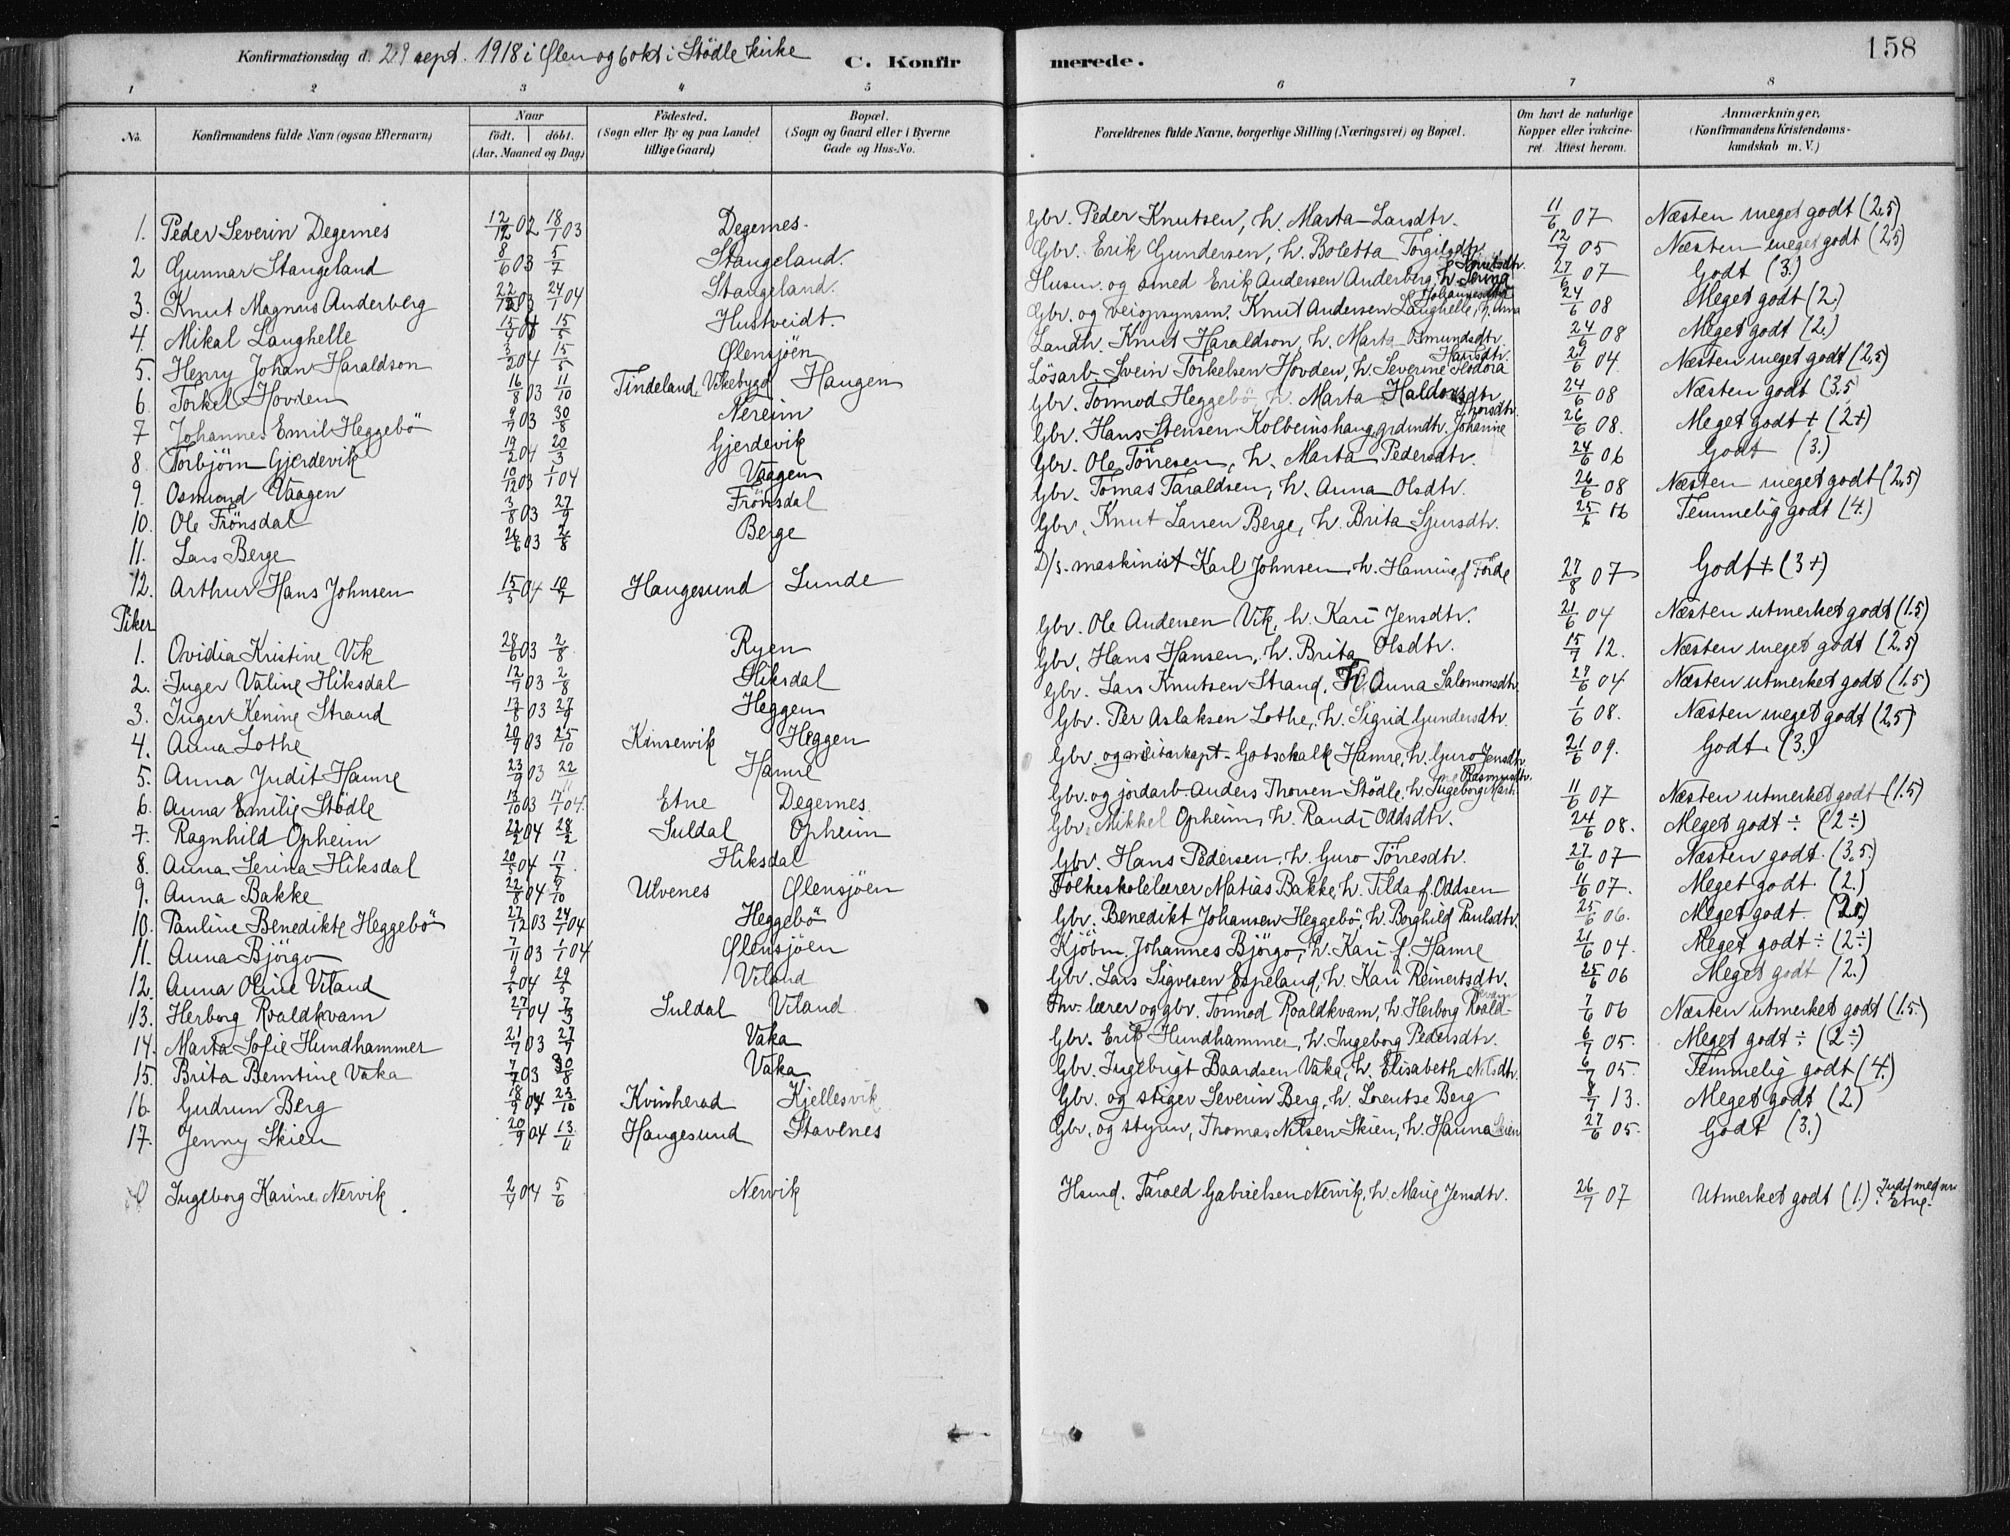 Konfirmationsdag d. 29 sept. 1918 i Ølen og 6 okt i Stødle kirke C. Konfirmerede. 158
1 2 3 4 5 6 7 8
No. Konfirmandens fulde Navn (ogsaa Efternavn) Naar födt. döbt. (Aar, Maaned og Dag) Födested. (Sogn eller By og paa Landet tillige Gaard) Bopæl. (Sogn og Gaard eller i Byerne Gade og Hus-No. Forældrenes fulde Navne, borgerlige Stilling (Næringsvei) og Bopæl. Om havt de naturlige Kopper eller vakcineret. Attest herom. Anmærkninger. (Konfirmandens Kristendomskundskab m. V.)
1. Peder Severin Degernes 12/12 02 18/1 03 Degernes. Gbr. Peder Knutsen, h. Marta Larsdtr. 11/6 07 Næsten meget godt (2,5)
2 Gunnar Stangeland 8/6 03 5/7 Stangeland. Gbr. Erik Gundersen, h. Boletta Torgilsdtr. 12/7 05 Næsten meget godt (2,5)
3. Knut Magnus Anderberg 22/12 03 24/1 04 Stangeland. Husm. og smed Erik Andersen Anderberg, h. Serina Knutsdtr. 27/6 07 Godt (3.)
4. Mikal Langhelle 15/5 Hustveidt. Gbr. og veiopsynsm. Knut Andersen Langhelle, h. Anna Johannesdtr. 24/6 08 Meget godt (2.)
5. Henry Johan Haraldson 3/2 04 15/5 Ølensjöen Landh. Knut Haraldson, h. Marta Osmundsdtr. 24/6 08 Meget godt (2.)
6. Torkel Hovden 16/8 03 11/10 Tindeland, Vikebygd Haugen Lösarb. Svein Torkelsen Hovden, h. Severine Teodora Hansdtr. 21/6 04. Næsten meget godt (2,5)
7 Johannes Emil Heggebö 9/7 03 30/8 Nereim Gbr. Tormod Heggebö, h. Marta Haldorsdtr. 24/6 08 Næsten godt (3,5
8. Torbjörn Gjerdevik 19/2 04 20/3 Gjerdevik Gbr. Hans Stensen Kolbeinshaug, h. Johanne 26/6 08. Meget godt + (2+)
9. Osmund Vaagen 10/12 03 1/1 04 Vaagen Gbr. Ole Törresen, h. Marta Pedersdtr. 24/6 06 Godt (3.)
10. Ole Frönsdal 3/8 03 27/9 Frönsdal Gbr. Tomas Taraldsen, h. Anna Olsdtr. 26/6 08 Næsten meget godt (2,5)
11. Lars Berge 26/6 03 2/8 Berge Gbr. Knut Larsen Berge, h. Brita Sjursdtr. 25/6 06 Temmelig godt (4.)
12. Arthur Hans Johnsen 15/5 04 10/7 Haugesund Lunde D/s. maskinist Karl Johnsen, h. Hanrine f. Förde 27/8 07 Godt + (3+)
Piker
1. Ovidia Kristine Vik 28/6 03 2/8 Ryen Gbr. Ole Andersen Vik, h. Kari Jensdtr. 21/6 04 Næsten utmerket godt (1.5)
2. Inger Valine Hiksdal 12/7 03 2/8 Hiksdal Gbr. Hans Hansen, h. Brita Olsdtr. 15/7 12. Næsten meget godt (2.5)
3. Inger Kenine Strand 13/8 03 27/9 Heggen Gbr. Lars Knutsen Strand, h. Anna Salomonsdtr. 27/6 04 Næsten utmerket godt (1.5)
4. Anna Lothe 20/9 03 25/10 Kinservik Heggen Gbr. Per Aslaksen Lothe, h. Sigrid Gundersdtr. 1/6 08. Næsten meget godt (2,5)
5. Anna Judit Hamre 23/9 03 22/11 Hamre Gbr. og militærkapt. Gotschalk Hamre, h. Guro Jensdtr. 21/6 09. Godt. (3.)
6. Anna Emilie Stödle 13/10 03 17/1 04. Etne Degernes. Gbr. og jordarb. Anders Thorsen Stödle, h. Ingeborg Marthine Rasmusdtr. 11/6 07 Næsten utmerket godt (1.5)
7. Ragnhild Opheim 22/2 04 28/2 Suldal Opheim Gbr. Mikkel Opheim, h. Randi Oddsdtr. 24/6 08. Meget godt ÷ (2÷)
8. Anna Serina Hiksdal 20/5 04 17/7 Hiksdal Gbr. Hans Pedersen, h. Guro Törresdtr. 27/6 07 Næsten godt. (3,5.)
9. Anna Bakke 22/8 04 9/10 Utvenes Ølensjöen Folkeskolelærer Matias Bakke, h. Tilda f. Oddsen 11/6 07. Meget godt. (2.)
10. Pauline Benedikte Heggebö 27/12 03 24/1 04 Heggebö Gbr. Benedikt Johansen Heggebö, h. Borghild Paulsdtr. 25/6 06. Meget godt. (2.)
11. Anna Björgo 7/11 03 1/1 04 Ølensjöen Kjöbm. Johannes Björgo, h. Kari f. Hamre 21/6 04. Meget godt ÷ (2÷)
12. Anna Oline Viland 9/5 04 29/5 Viland Gbr. Lars Sigvesen Espeland, h. Kari Reinertsdtr. 25/6 06 Meget godt (2.)
13. Herborg Roaldkvam 27/1 04 7/3 Suldal Viland. Hv. lærer og gbr. Tormod Roaldkvam, h. Herborg Roaldkvam 7/6 06 Næsten utmerket godt (1.5.)
14. Marta Sofie Hundhammer 21/7 03 27/7 Vaka Gbr. Erik Hundhammer, h. Ingeborg Pedersdtr. 6/7 05. Meget godt ÷ (2÷)
15. Brita Berntine Vaka 7/7 03 30/8 Vaka Gbr. Ingebrigt Baardsen Vaka, h. Elisabeth Nilsdtr. 6/7 05. Temmelig godt (4.)
16. Gudrun Berg 18/9 04 23/10 Kvinherad Kjellesvik Gbr. og stiger Severin Berg, h. Lorentse Berg 8/7 13. Meget godt (2.)
17. Jenny Skien 20/9 04 13/11 Haugesund Stavenes Gbr. og styrm. Thomas Nilsen Skien, h. Hanna Skien 27/6 05. Godt (3.)
Ingeborg Karine Nervik 2/4 04 5/6 Nervik Husmd. Tarald Gabrielsen Nervik, h. Marie Jensdtr. 26/7 07 Utmerket godt (1.) Etne.